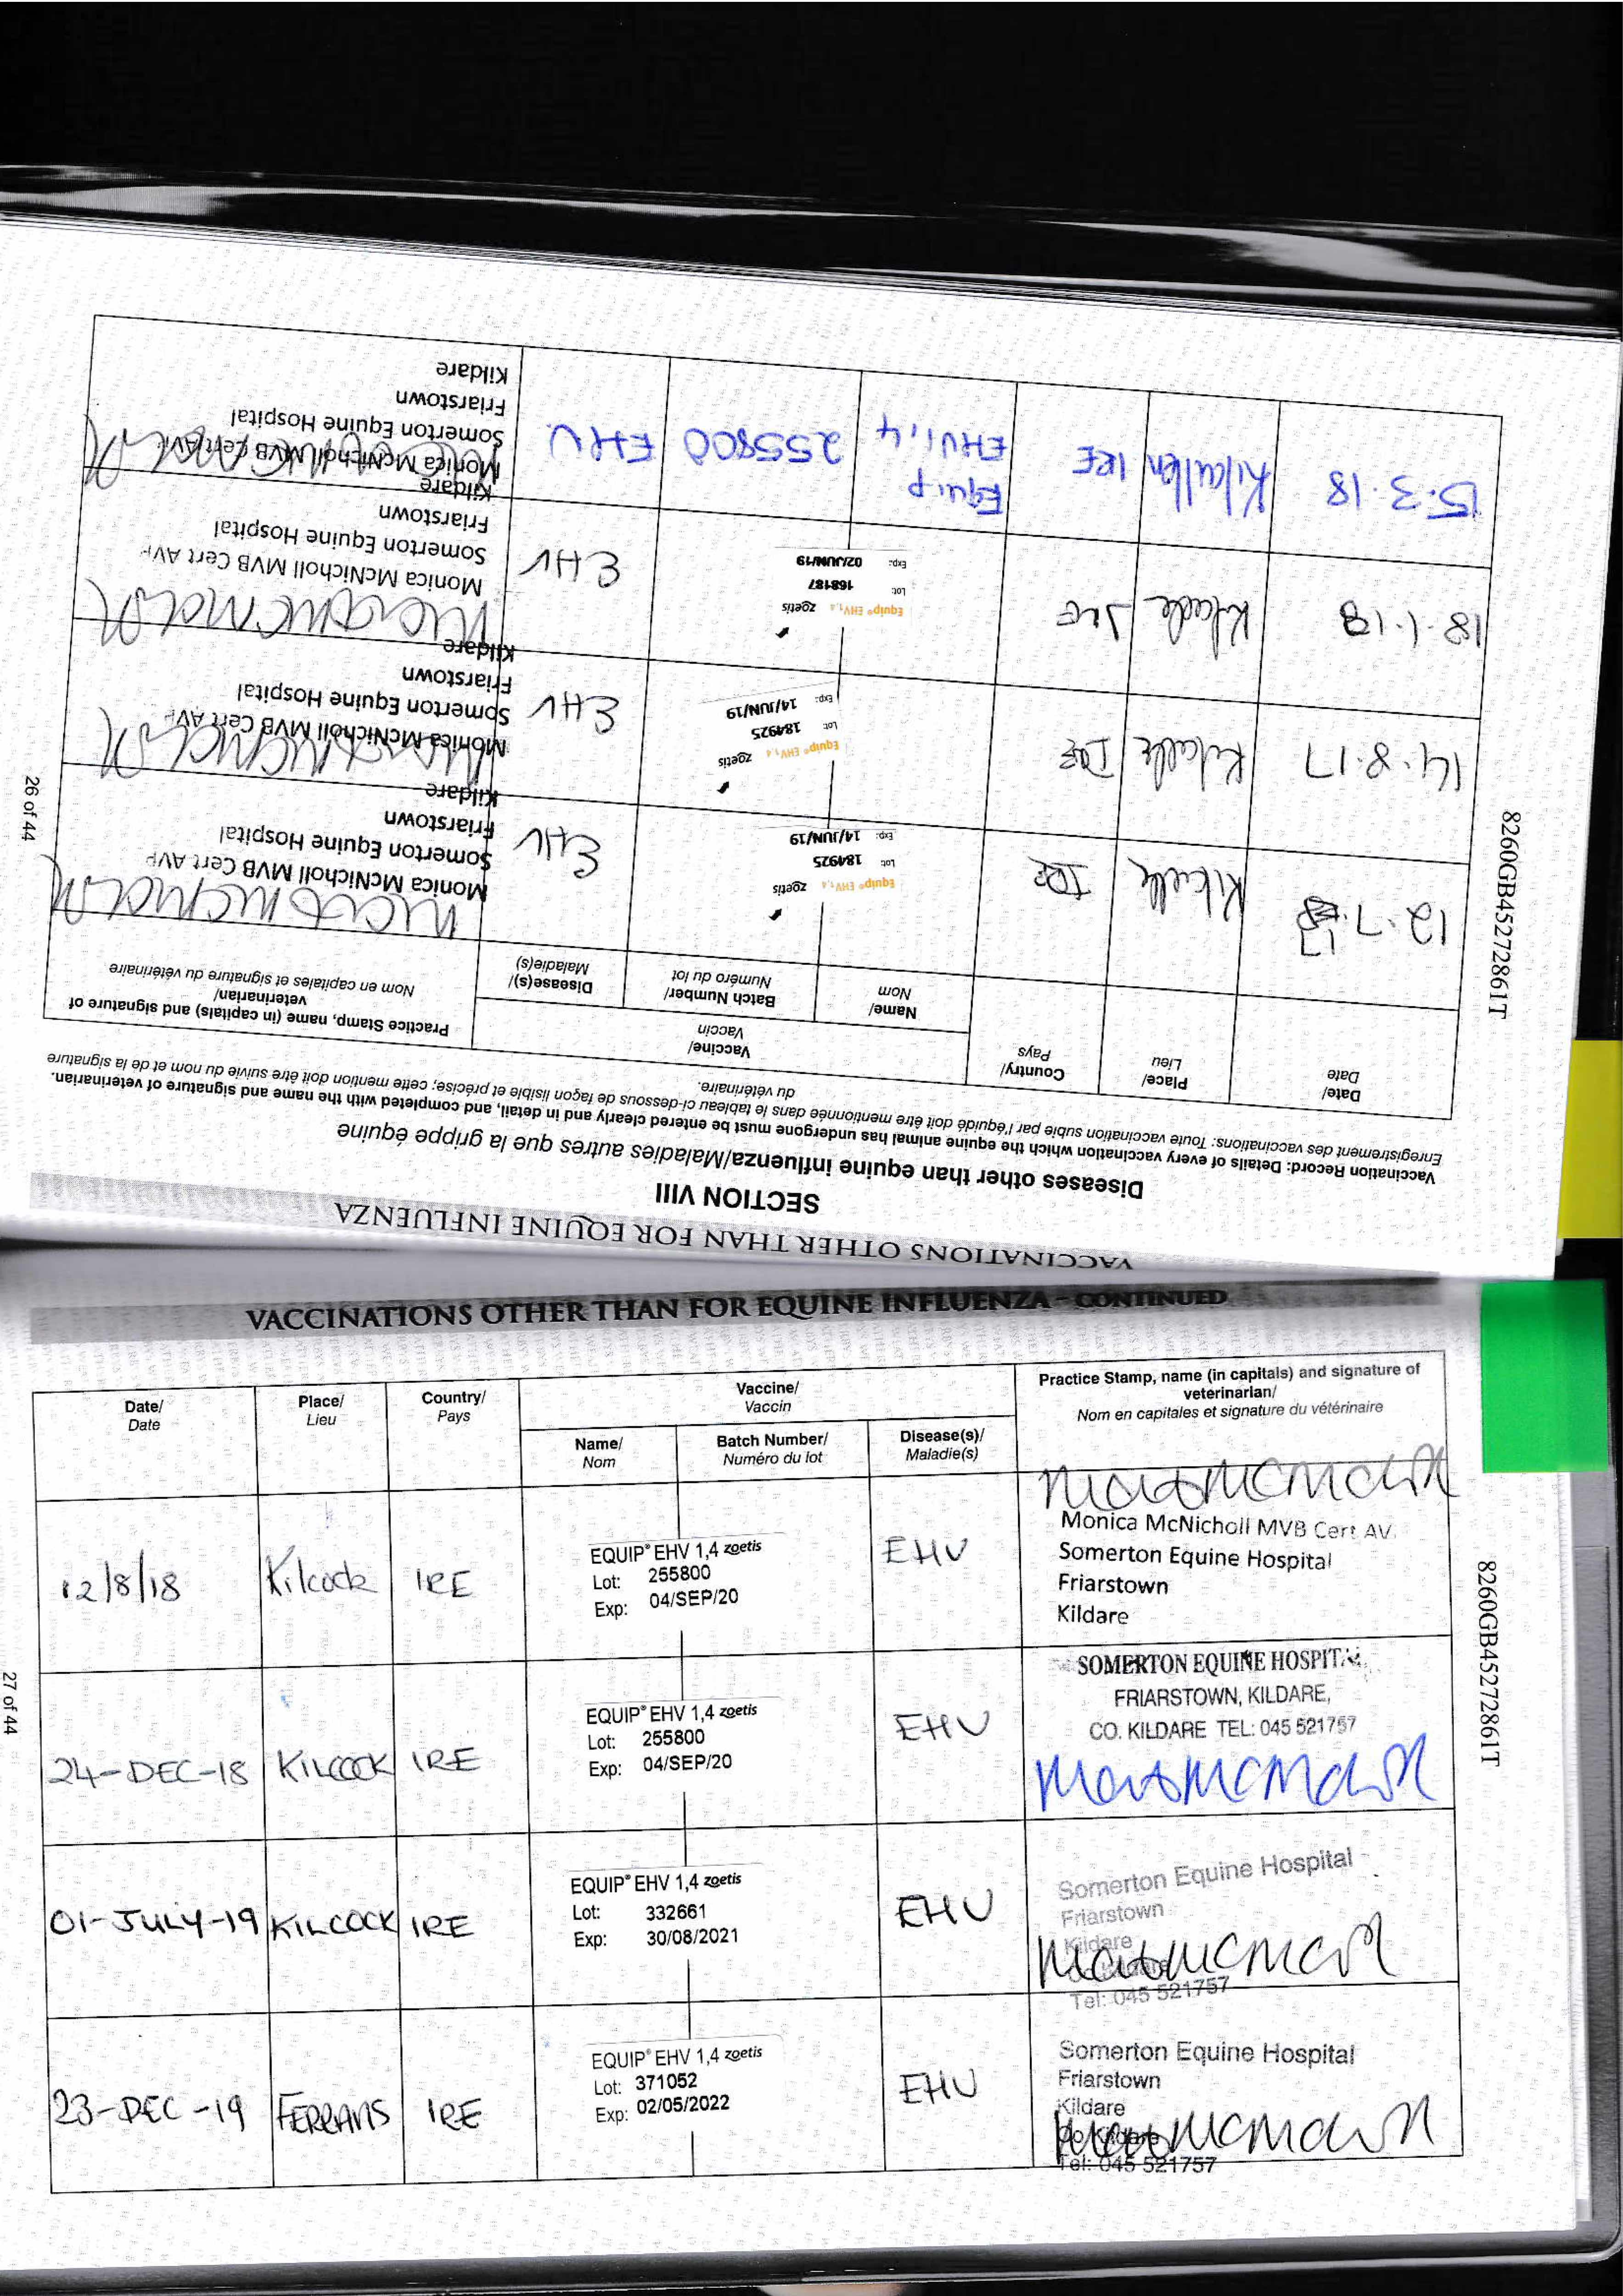 VACCINATIONS OTHER THAN FOR EQUINE INFLUENZA
SECTION VIII
Diseases other than equine influenza/Maladies autres que la grippe équine
Vaccination Record: Details of every vaccination which the equine animal has undergone must be entered clearly and in detail, and completed with the name and signature of veterinarian.
Enregistrement des vaccinations: Toute vaccination subie par l'équidé doit être mentionnée dans le tableau ci-dessous de façon lisible et précise; cette mention doit être suivie du nom et de la signature
du vétérinaire.
Date/
Date
Place/
Lieu
Country/
Pays
Vaccine/
Vaccin
Name/
Nom
Batch Number/
Numéro du lot
Disease(s)/
Maladie(s)
Practice Stamp, name (in capitals) and signature of
veterinarian/
Nom en capitales et signature du vétérinaire
12.7.17
IRE
Equip® EHV1,4 zoetis
Lot: 184925
Exp: 14/JUN/19
EHV
Monica McNicholl MVB Cert AVP
Somerton Equine Hospital
Friarstown
Kildare
14.8.17
IRE
Equip® EHV1,4 zoetis
Lot: 184925
Exp: 14/JUN/19
EHV
Monica McNicholl MVB Cert AVP
Somerton Equine Hospital
Friarstown
Kildare
18.1.18
Ire
Equip® EHV1,4 zoetis
Lot: 168187
Exp: 02/JUN/19
EHV
Monica McNicholl MVB Cert AVP
Somerton Equine Hospital
Friarstown
Kildare
15.3.18
Kilcullen
IRE
Equip
EHV1,4
255800
EHV.
Monica McNicholl MVB Cert AVP
Somerton Equine Hospital
Friarstown
Kildare
8260GB45272861T
26 of 44
VACCINATIONS OTHER THAN FOR EQUINE INFLUENZA - CONTINUED
Date/
Date
Place/
Lieu
Country/
Pays
Vaccine/
Vaccin
Name/
Nom
Batch Number/
Numéro du lot
Disease(s)/
Maladie(s)
Practice Stamp, name (in capitals) and signature of
veterinarian/
Nom en capitales et signature du vétérinaire
12/8/18
Kilcock
IRE
EQUIP® EHV 1,4 zoetis
Lot: 255800
Exp: 04/SEP/20
EHV
Monica McNicholl MVB Cert AV
Somerton Equine Hospital
Friarstown
Kildare
24-DEC-18
KILCOCK
IRE
EQUIP® EHV 1,4 zoetis
Lot: 255800
Exp: 04/SEP/20
EHV
SOMERTON EQUINE HOSPITAL
FRIARSTOWN, KILDARE,
CO. KILDARE TEL: 045 521757
01-JULY-19
KILCOCK
IRE
EQUIP® EHV 1,4 zoetis
Lot: 332661
Exp: 30/08/2021
EHV
Somerton Equine Hospital
Friarstown
Kildare
Tel: 045 521757
23-DEC-19
FERRANS
IRE
EQUIP® EHV 1,4 zoetis
Lot: 371052
Exp: 02/05/2022
EHV
Somerton Equine Hospital
Friarstown
Kildare
Co. Kildare
Tel: 045 521757
8260GB45272861T
27 of 44